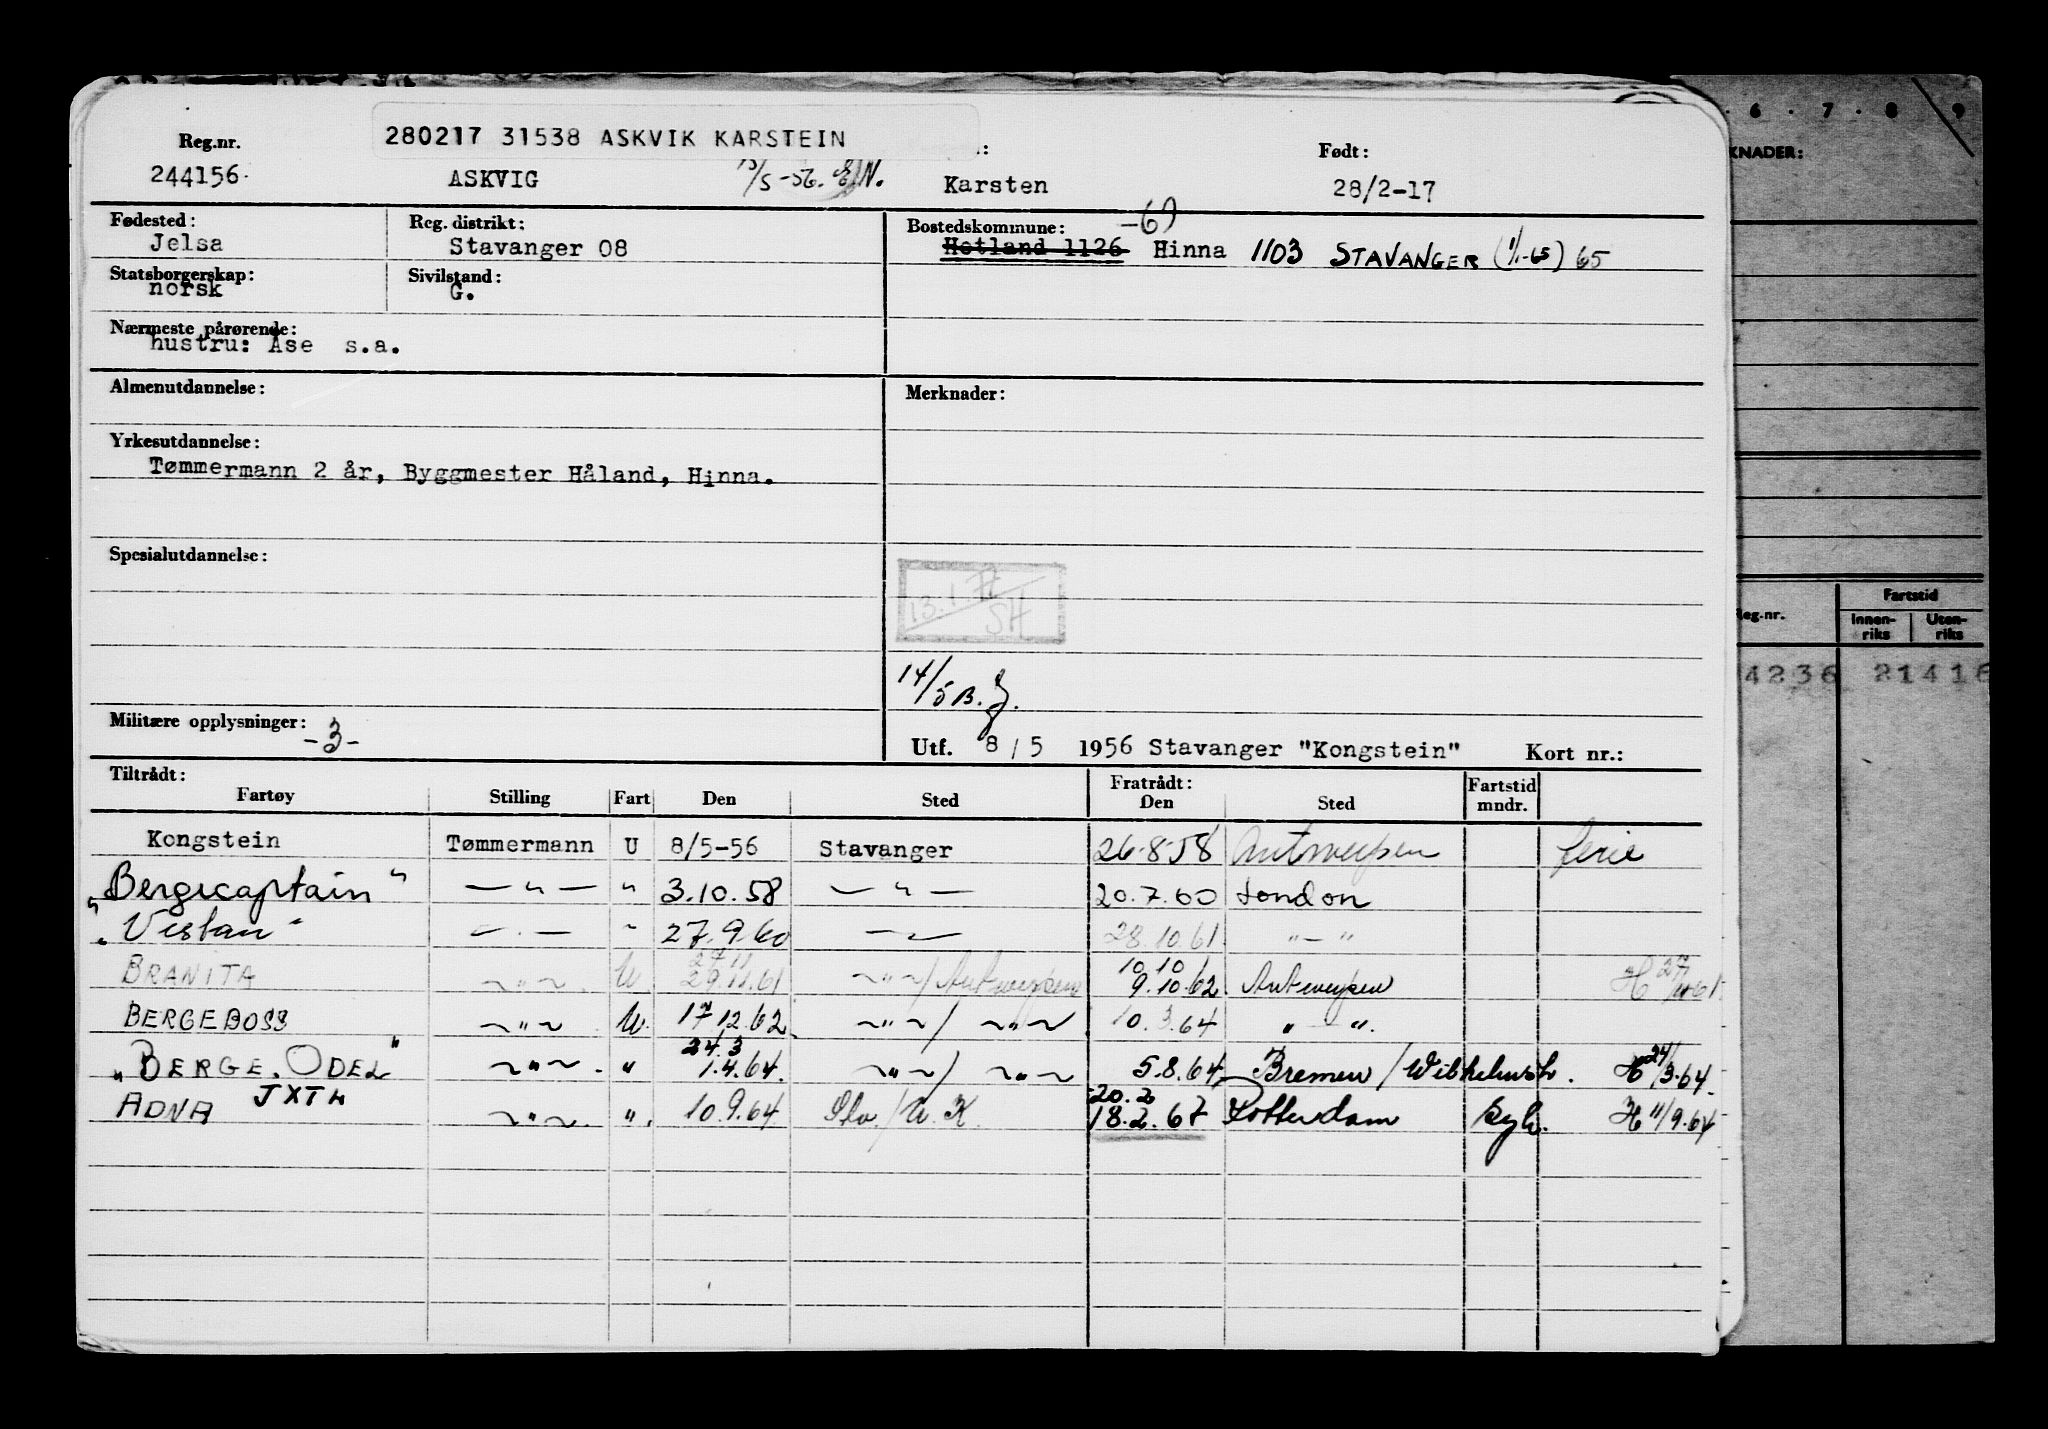 6 . 7 . 8 . 9
280217 31538 ASKVIK KARSTEIN
Reg.nr. Født:
244156. ASKVIG /5-56. Karsten 28/2-17
KNADER:
Fødested: Reg. distrikt: Bostedskommune: -69
Jelsa Stavanger 08 Hetland 1126 Hinna 1103 STAVANGER (1/1-65) 65
Statsborgerskap: Sivilstand:
norsk G.
Nærmeste pårørende:
hustru: Åse s.a.
Almenutdannelse: Merknader:
Yrkesutdannelse:
Tømmermann 2 år, Byggmester Håland, Hinna.
Spesialutdannelse:
13.1.77
SH
Reg.nr. Fartstid
Innen-riks Uten-riks
4236 21416
14/5 B.J.
Militære opplysninger: -3-
Utf. 8/5 1956 Stavanger "Kongstein" Kort nr.:
Tiltrådt: Fratrådt:
Fartøy Stilling Fart Den Sted Den Sted Fartstid mndr.
Kongstein Tømmermann U 8/5-56 Stavanger 26.8.58 Antwerpen ferie
"Bergecaptain" — " — " 3.10.58 — " — 20.7.60 London
"Vestan" — . — " 27.9.60 — " — 28.10.61 " — "
27 11 10 10
BRANITA ~ " ~ U. 29.11.61 ~ " ~ / Antwerpen 9.10.62 Antwerpen H 27/11 61
BERGEBOSS ~ " ~ U. 17 12.62 ~ " ~ / ~ " ~ 10.3.64 " — ".
24.3
"BERGE. ODEL" ~ " ~ . " 1.4.64. ~ " ~ / ~ " ~ 5.8.64 Bremen / Wilhelmsh. H 24/3.64.
JXTH 20.2
ADNA ~ " ~ . ". 10.9.64 Sta / U.K. 18.2.67 Rotterdam syk. H 11/9.64